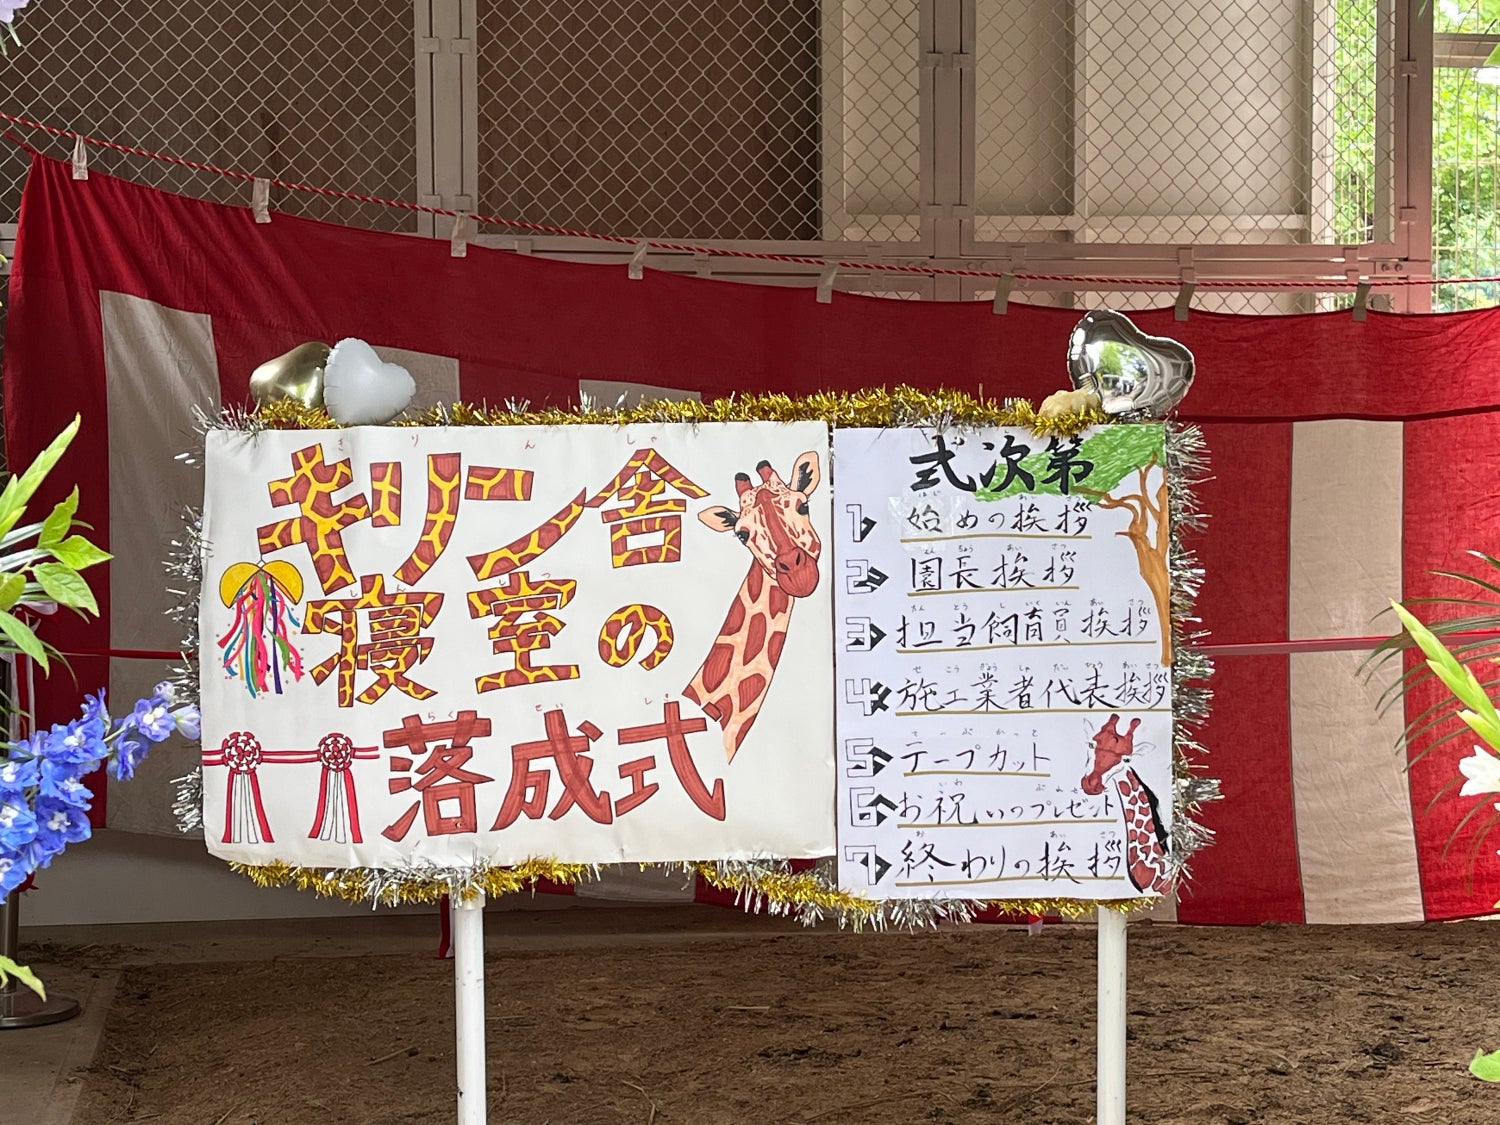 きりんしゃ
キリン舎
しんしつ
寝室の
らくせいしき
落成式
式次第
はじ あいさつ
1 始めの挨拶
えんちょうあいさつ
2 園長挨拶
たんとうしいくいんあいさつ
3 担当飼育員挨拶
せこうぎょうしゃだいひょうあいさつ
4 施工業者代表挨拶
てーぷかっと
5 テープカット
いわ ぷれぜ
6 お祝いのプレゼント
お あいさつ
7 終わりの挨拶